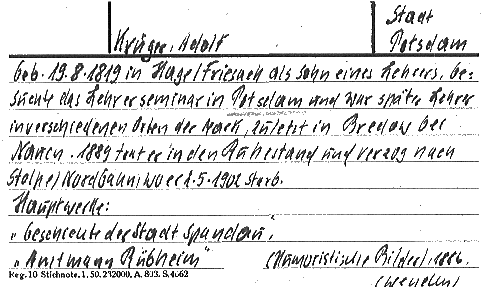 Stadt
Krüger, Adolf Potsdam
geb. 19.8.1819 in Hage/Friesack als Sohn eines Lehrers, be-
suchte das Lehrerseminar in Potsdam und war später Lehrer
in verschiedenen Orten der Mark, zuletzt in Bredow bei
Nauen. 1889 trat er in den Ruhestand und verzog nach
Stolpe/Nordbahn, wo er 1.5.1902 starb.
Hauptwerke:
"Geschichte der Stadt Spandau",
"Amtmann Rübheim" (Humoristische Bilder), 1886.
Reg.-10 Stichnote. 1. 50. 232000. A. 803. S. 4662
(wenden)